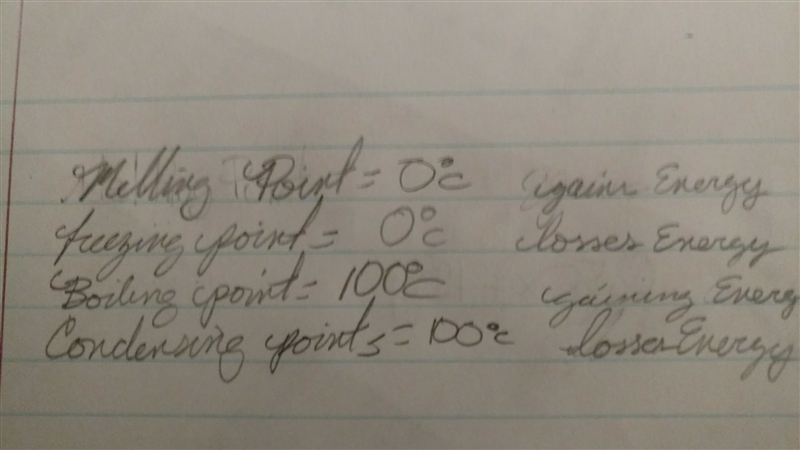 Melting Point = 0°c gains Energy
freezing point = 0°c losses Energy
Boiling point = 100°C gaining Energ
Condensing points = 100°c losses Energy